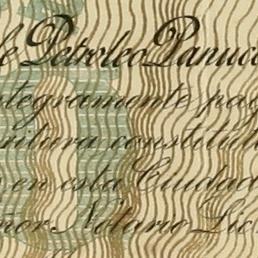 le Petroleo Panuco
ntegramente pag
ritura constitut
en esta Ciudad
ñor Notario Lic